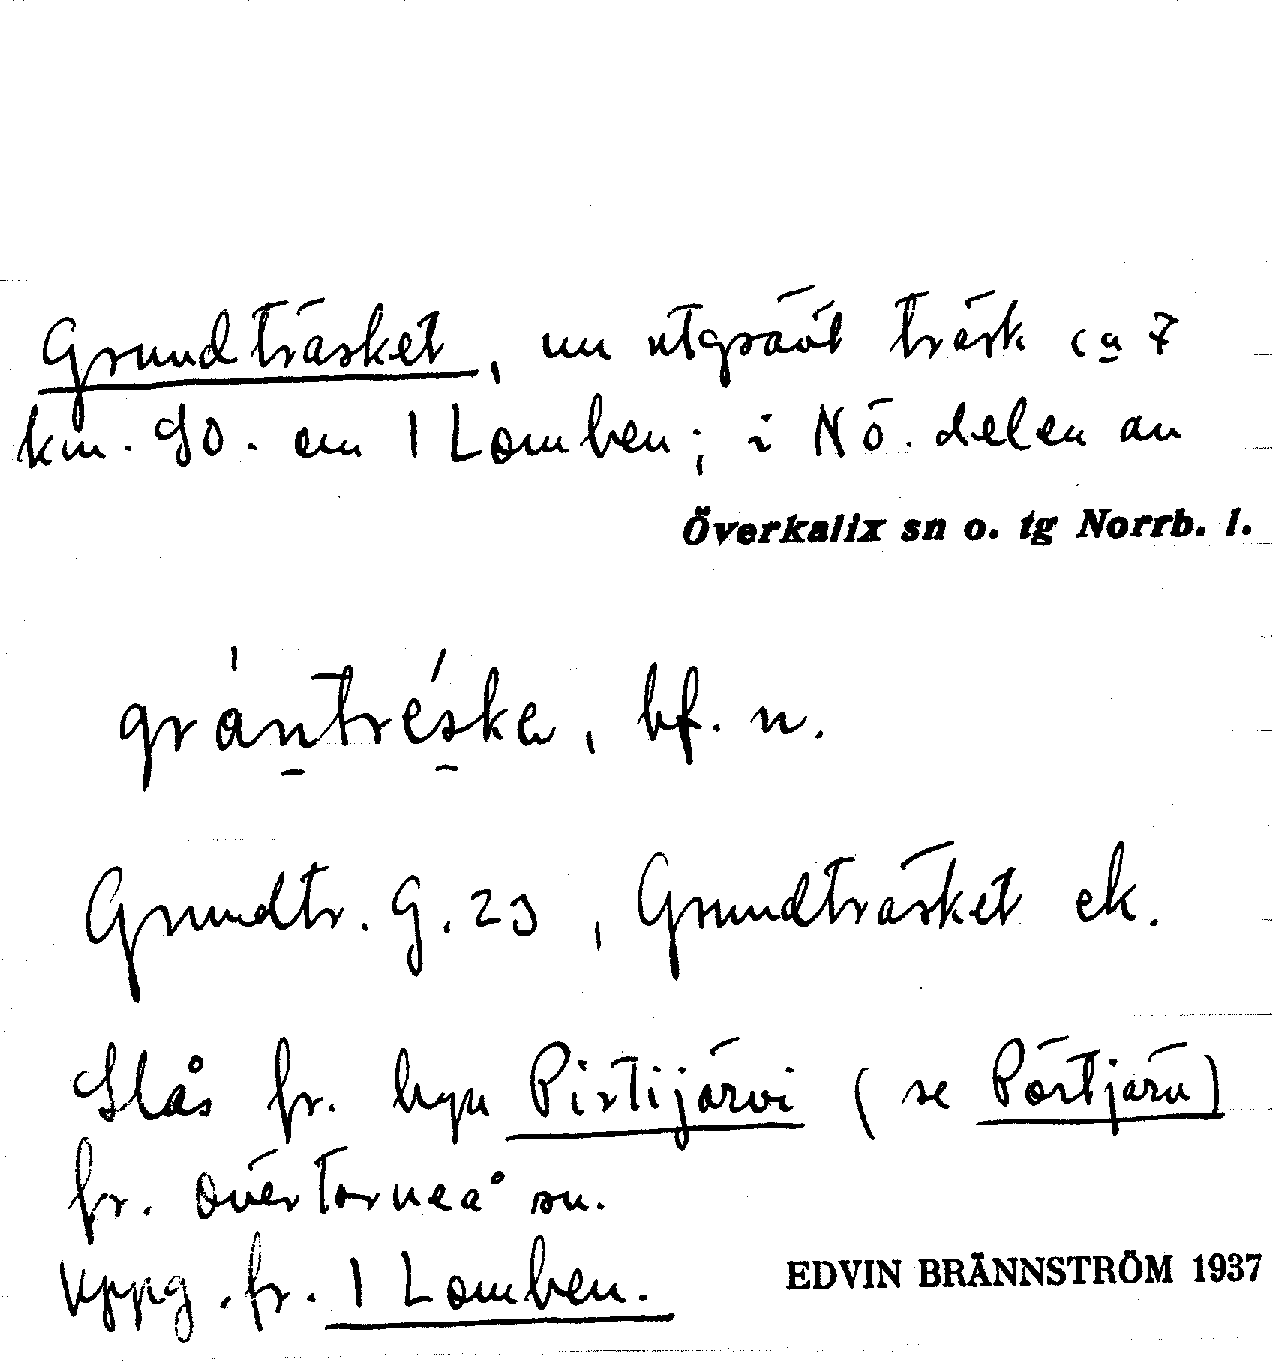 Grundträsket, nu utgrävt träsk ca 7
km. SO. om 1 Lomben; i NÖ. delen av
Överkalix sn o. tg Norrb. l.
grántréska, bf. n.
Grundtr. G. 23, Grundträsket ek.
Slås fr. byn Pistijärvi (se Pörtjärv)
fr. Övertorneå sn.
Uppg. fr. 1 Lomben.
EDVIN BRÄNNSTRÖM 1937